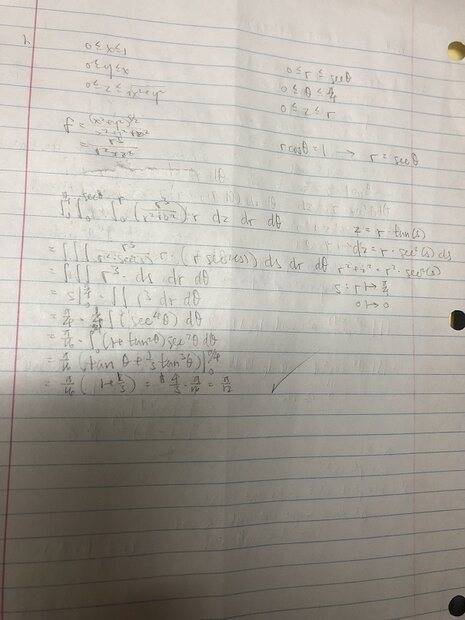 0 ≤ x ≤ 1
0 ≤ y ≤ x
0 ≤ z ≤ √x²+y²
0 ≤ r ≤ secθ
0 ≤ θ ≤ π/4
0 ≤ z ≤ r
f = (x²+y²)^3/2 / x²+y²+z²
= r³ / r²+z²
rcosθ = 1 → r = secθ
∫∫∫ (r³ / r²+z²) r dz dr dθ
z = r · tan(s)
dz = r · sec²(s) ds
= ∫∫∫ r³ / r² sec²(s) · r · (r sec²(s)) ds dr dθ
r²+z² = r² · sec²(s)
= ∫∫∫ r³ · ds dr dθ
s: r ↦ π/4
0 ↦ 0
= s|₀^π/4 · ∫∫ r³ dr dθ
= π/4 · 1/4 ∫ (sec⁴θ) dθ
= π/16 · ∫ (1+tan²θ) sec²θ dθ
= π/16 (tan θ + 1/3 tan³θ)|₀^π/4
= π/16 (1+1/3) = 4/3 · π/16 = π/12